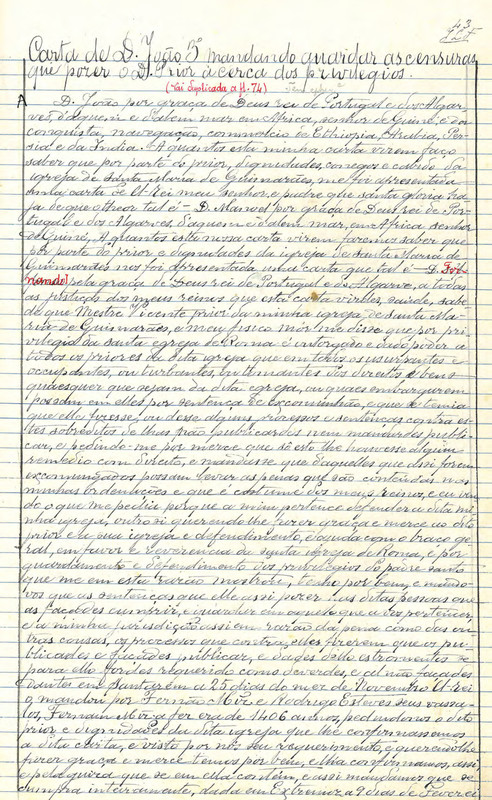 43
Carta de D. João 3º mandando guardar as censuras
que pozer o D. Prior á cerca dos privilegios.
(Vai duplicada a fl. 74)
D. João por graça de Deus rei de Portugal e dos Algar-
ves, d'aquem e d'alem mar em Africa, senhor de Guiné, e da
conquista, navegação, commercio da Ethiopia, Arabia, Per-
sia e da India. A quantos esta minha carta virem faço
saber que por parte do prior, dignidades, conegos e cabido da
igreja de Santa Maria de Guimarães, me foi apresentada
uma carta de El-Rei meu senhor, e padre que santa gloria ha-
ja de que o theor tal é - D. Manoel por graça de Deus rei de Por-
tugal e dos Algarves d'aquem e d'alem mar, em Africa senhor
de Guiné, A quantos esta nossa carta virem fazemos saber que
por parte do prior e dignidades da igreja de Santa Maria de
Guimarães nos foi apresentada uma carta que tal é - D. Fer-
nando pela graça de Deus rei de Portugal e do Algarve, a todas
as justiças dos meus reinos que esta carta virdes, saude, sabe-
de que Mestre Vicente prior da minha igreja de Santa Ma-
ria de Guimarães, e meu fisico mór me disse que por pri-
vilegio da santa egreja de Roma é outorgado e dado poder a
todos os priores da dita igreja que em todos os usurpantes e
occupantes, ou turbantes, ou tomantes dos direitos e bens
quaesquer que sejam da dita egreja, ou aquaes embargarem
possam em elles por sentença de excomunhão, e que se temia
que elle fizesse, ou desse alguns processos e sentenças contra es-
tes sobreditos de lhas não publicardes nem mandardes publi-
car, e pedindo-me por merce que sobre esto lhe houvesse algum
remedio com direito, e mandasse que d'aquelles que assi forem
excomungados possam levar as penas que são contheudas nas
minhas ordenações e que é costume dos meus reinos, e eu vin-
do o que me pedia porque a mim pertence defender a dita mi-
nha igreja, outrosi querendo lhe fazer graça e merce ao dito
prior e á sua igreja e defendimento, e ajuda com o braço ge-
ral, em favor e reverencia da santa igreja de Roma, e por
guardamento e defendimento dos privilegios do padre santo
que me em esta razão mostrou, tenho por bem, e mando-
vos que as sentenças que elle assi pozer nas ditas pessoas que
as façades cumprir, e guardar em aquelo que a vós pertencer,
da minha jurisdicção assi em razão da pena como das ou-
tras cousas, os processos que contra elles fizerem que os pu-
blicades e façades publicar, e dades dello estromentos se
para ello fordes requerido como devedes, e al não façades
Dante em Santarem a 25 dias do mez de Novembro El-Rei
o mandou por Fernão Miz e Rodrigo Esteves seus vassa-
los, Fernam Miz a fez era de 1406 annos, pedindo-nos o dito
prior e dignidades da dita igreja que lhe confirmassemos
a dita carta, e visto por nós seu requerimento, e querendo lhe
fazer graça e merce temos por bem, e lha confirmamos, assi
e pela guiza que se em ella contem, e assi mandamos que se
cumpra inteiramente, dada em Extremoz a 9 dias de Feverei-